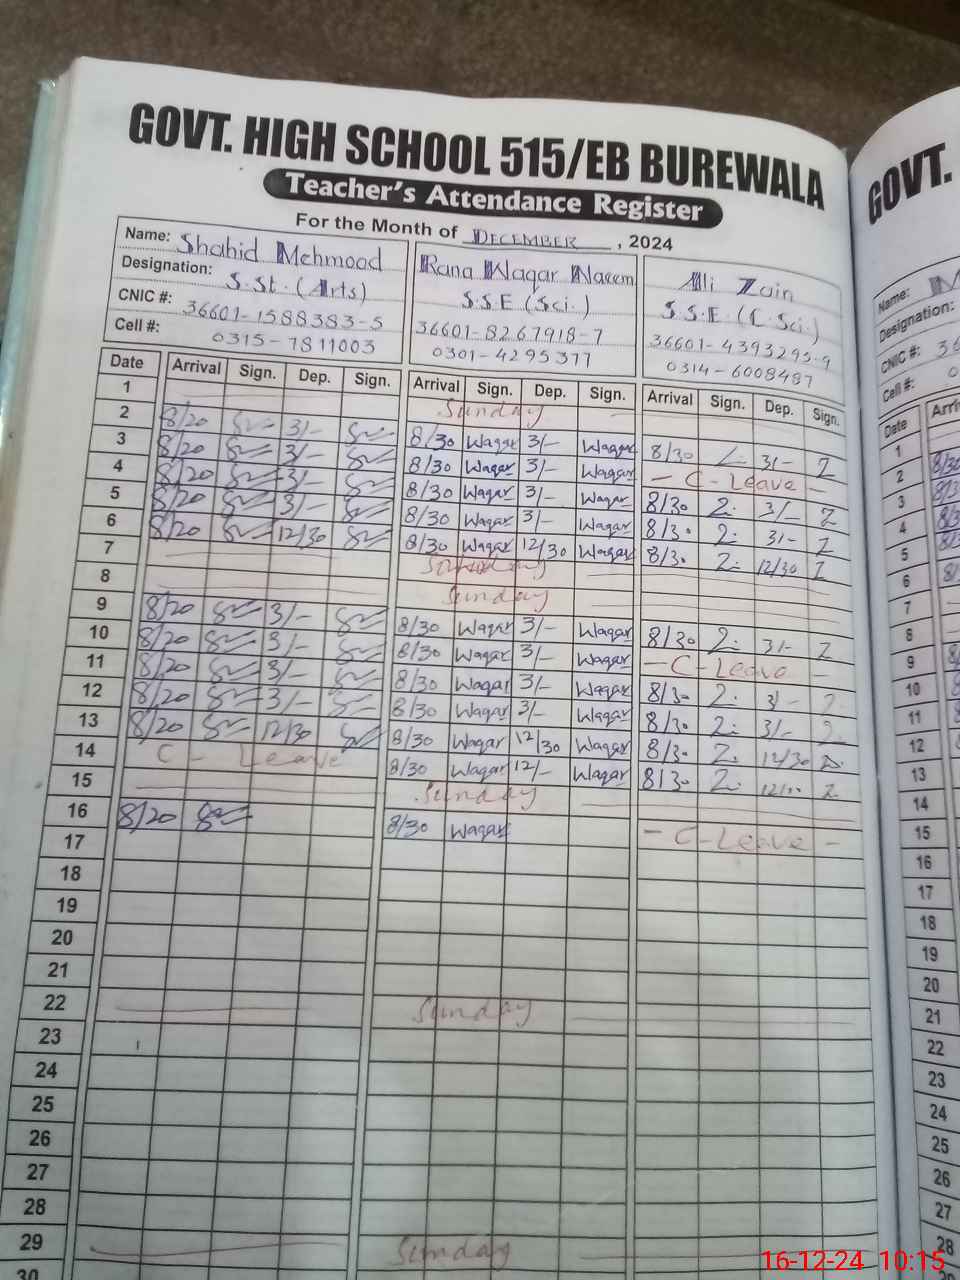 GOVT. HIGH SCHOOL 515/EB BUREWALA
Teacher's Attendance Register
For the Month of DECEMBER, 2024
Name: Shahid Mehmood Rana Waqar Naeem Ali Zain
Designation: S.St. (Arts) S.S.E (Sci.) S.S.E (C.Sci.)
CNIC #: 36601-1588383-5 36601-8267918-7 36601-4393295-9
Cell #: 0315-7811003 0301-4295377 0314-6008487
Date Arrival Sign. Dep. Sign. Arrival Sign. Dep. Sign. Arrival Sign. Dep. Sign.
1 Sunday
2 8/20 3/- 8/30 Waqar 3/- Waqar 8/30 3/-
3 8/20 3/- 8/30 Waqar 3/- Waqar - C-Leave -
4 8/20 3/- 8/30 Waqar 3/- Waqar 8/30 3/-
5 8/20 3/- 8/30 Waqar 3/- Waqar 8/30 3/-
6 8/20 12/30 8/30 Waqar 12/30 Waqar 8/30 12/30
7
8 Sunday
9 8/20 3/- 8/30 Waqar 3/- Waqar 8/30 3/-
10 8/20 3/- 8/30 Waqar 3/- Waqar - C-Leave -
11 8/20 3/- 8/30 Waqar 3/- Waqar 8/30 3/-
12 8/20 3/- 8/30 Waqar 3/- Waqar 8/30 3/-
13 8/20 12/30 8/30 Waqar 12/30 Waqar 8/30 12/30
14 C-Leave 8/30 Waqar 12/- Waqar 8/30
15 Sunday
16 8/20 8/30 Waqar - C-Leave -
17
18
19
20
21
22 Sunday
23
24
25
26
27
28
29 Sunday
30
GOVT.
Name: M
Designation:
CNIC #: 36
Cell #: 0
Date Arri
1
2 8/30
3
4
5
6
7
8
9
10
11
12
13
14
15
16
17
18
19
20
21
22
23
24
25
26
27
28
16-12-24 10:15